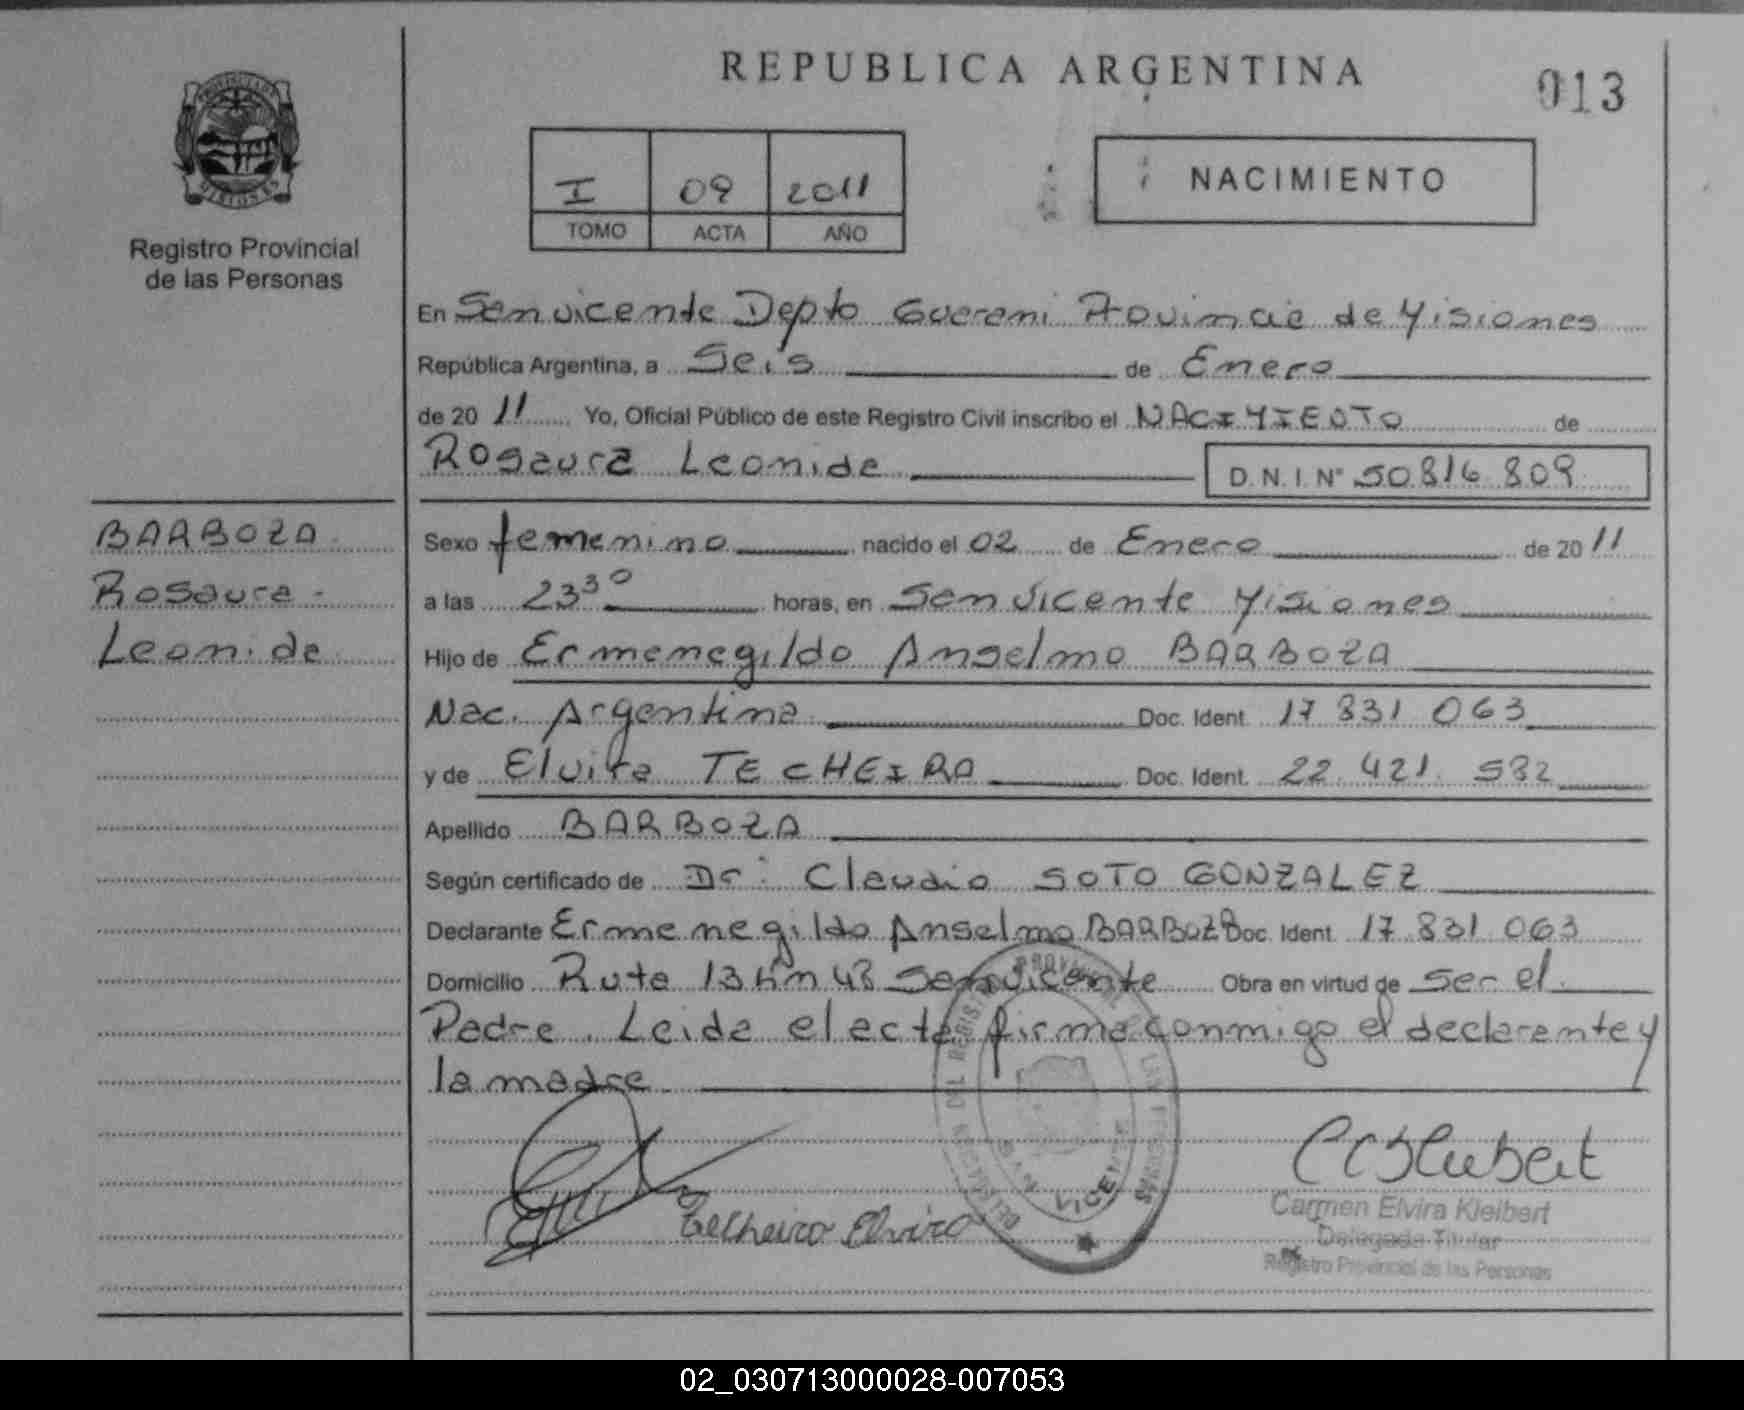 REPUBLICA ARGENTINA
013
PROVINCIA DE MISIONES
Registro Provincial
de las Personas
I 09 2011
TOMO ACTA AÑO
NACIMIENTO
En San vicente Depto Guarani Provincia de Misiones
República Argentina, a Seis de Enero
de 20 11 Yo, Oficial Público de este Registro Civil inscribo el NACIMIENTO de
Rosaura Leonida
D.N.I. N° 50.816.809
BARBOZA
Rosaura
Leonida
Sexo femenino nacido el 02 de Enero de 20 11
a las 23³⁰ horas, en San Vicente Misiones
Hijo de Ermenegildo Anselmo BARBOZA
Nac. Argentina Doc. Ident. 17 831 063
y de Elvira TECHEIRA Doc. Ident. 22.421.582
Apellido BARBOZA
Según certificado de Dr: Claudio SOTO GONZALEZ
Declarante Ermenegildo Anselmo BARBOZA Doc. Ident. 17 831 063
Domicilio Ruta 13 Km 43 San Vicente Obra en virtud de ser el
Padre. Leida el acta firma conmigo el declarante y
la madre
Techeira Elvira
VICENTE
Carmen Elvira Kleibert
Delegada Titular
Registro Provincial de las Personas
02_030713000028-007053